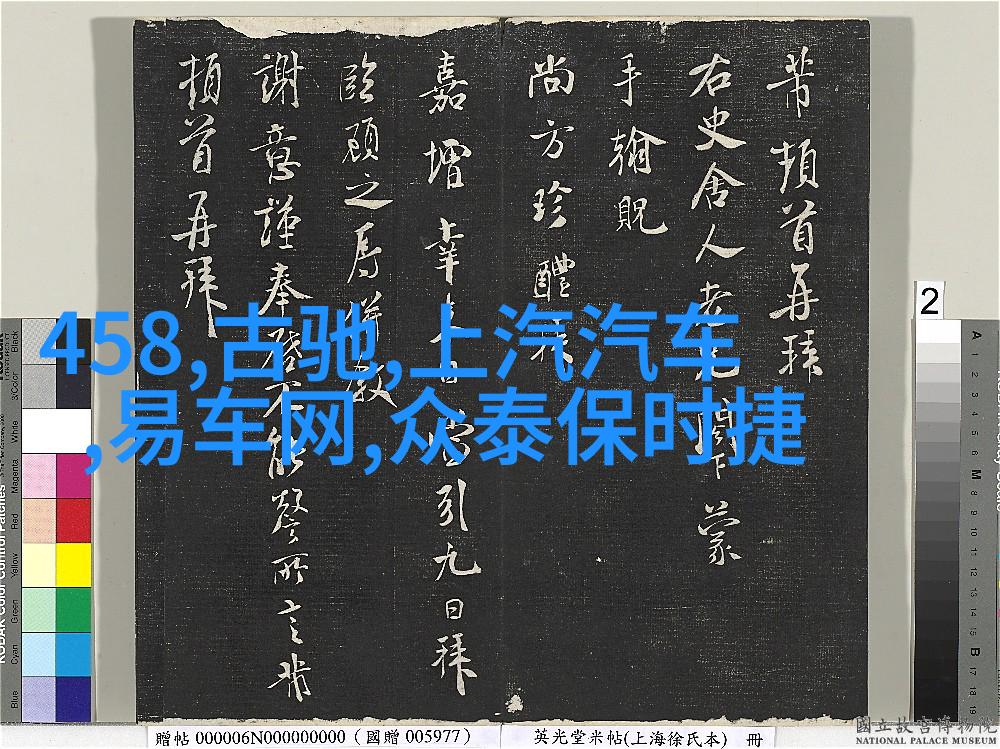 芾頓首再拜
右史舍人老兄閤下蒙
手翰貺
尚方珍醴拜
嘉增幸
當引九日拜
臨顧之辱
謝意謹奉
不能謦所言芾
頓首再拜
458,古驰,上汽汽车
,易车网,众泰保时捷
2
贈帖 000006N000000000 (國贈 005977)
英光堂米帖(上海徐氏本) 冊
國立故宮博物院
NATIONAL PALACE MUSEUM